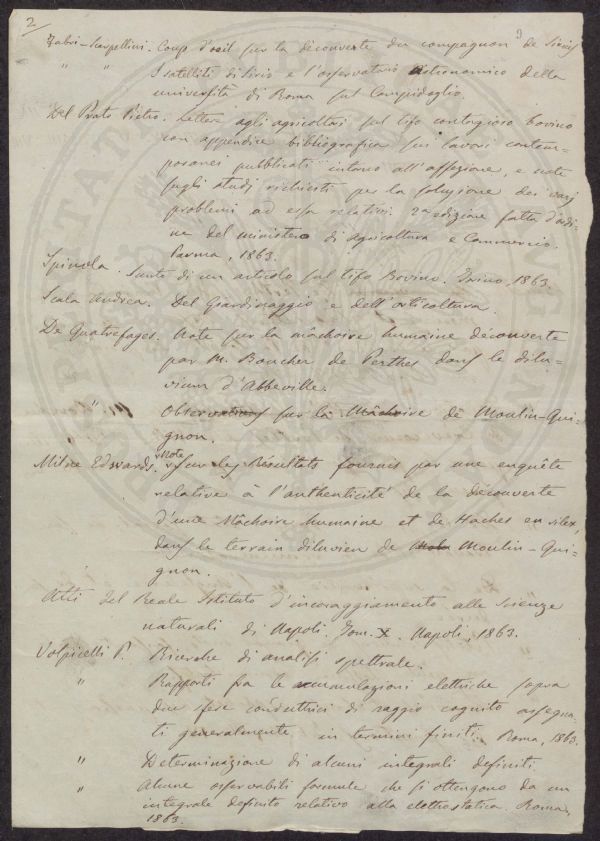 2
Fabri-Scarpellini. Coup d'oeil sur la découverte du compagnon de Sirius
" " I satelliti di Sirio e l'osservatorio Astronomico della
università di Roma sul Campidoglio.
Del Prato Pietro. Lettera agli agricoltori sul tifo contagioso bovino
con appendice bibliografica sui lavori contem-
poranei pubblicati intorno all'affezione, e note
sugli studi richiesti per la soluzione dei varj
problemi ad essa relativi. 2a edizione fatta d'ordi-
ne del ministero di Agricoltura e Commercio.
Parma, 1863.
Spinola. Sunto di un articolo sul tifo Bovino. Torino, 1863.
Scala Andrea. Del Giardinaggio e dell'orticoltura.
De Quatrefages. Note sur la mâchoire humaine découverte
par M. Boucher de Perthes dans le dilu-
vium d'Abbeville.
" Observations sur la Mâchoire de Moulin-Qui-
gnon.
Milne Edwards. Note sur les Résultats fournis par une enquête
relative à l'authenticité de la découverte
d'une Mâchoire humaine et de Haches en silex,
dans le terrain diluvien de Moulin-Qui-
gnon.
Atti del Reale Istituto d'incoraggiamento alle Scienze
naturali di Napoli. Tom. X. Napoli, 1863.
Volpicelli P. Ricerche di analisi spettrale.
" Rapporti fra le accumulazioni elettriche sopra
due sfere conduttrici di raggio cognito assegna-
ti generalmente in termini finiti. Roma, 1863.
" Determinazione di alcuni integrali definiti.
" Alcune osservabili formule che si ottengono da un
integrale definito relativo alla elettrostatica. Roma,
1863.